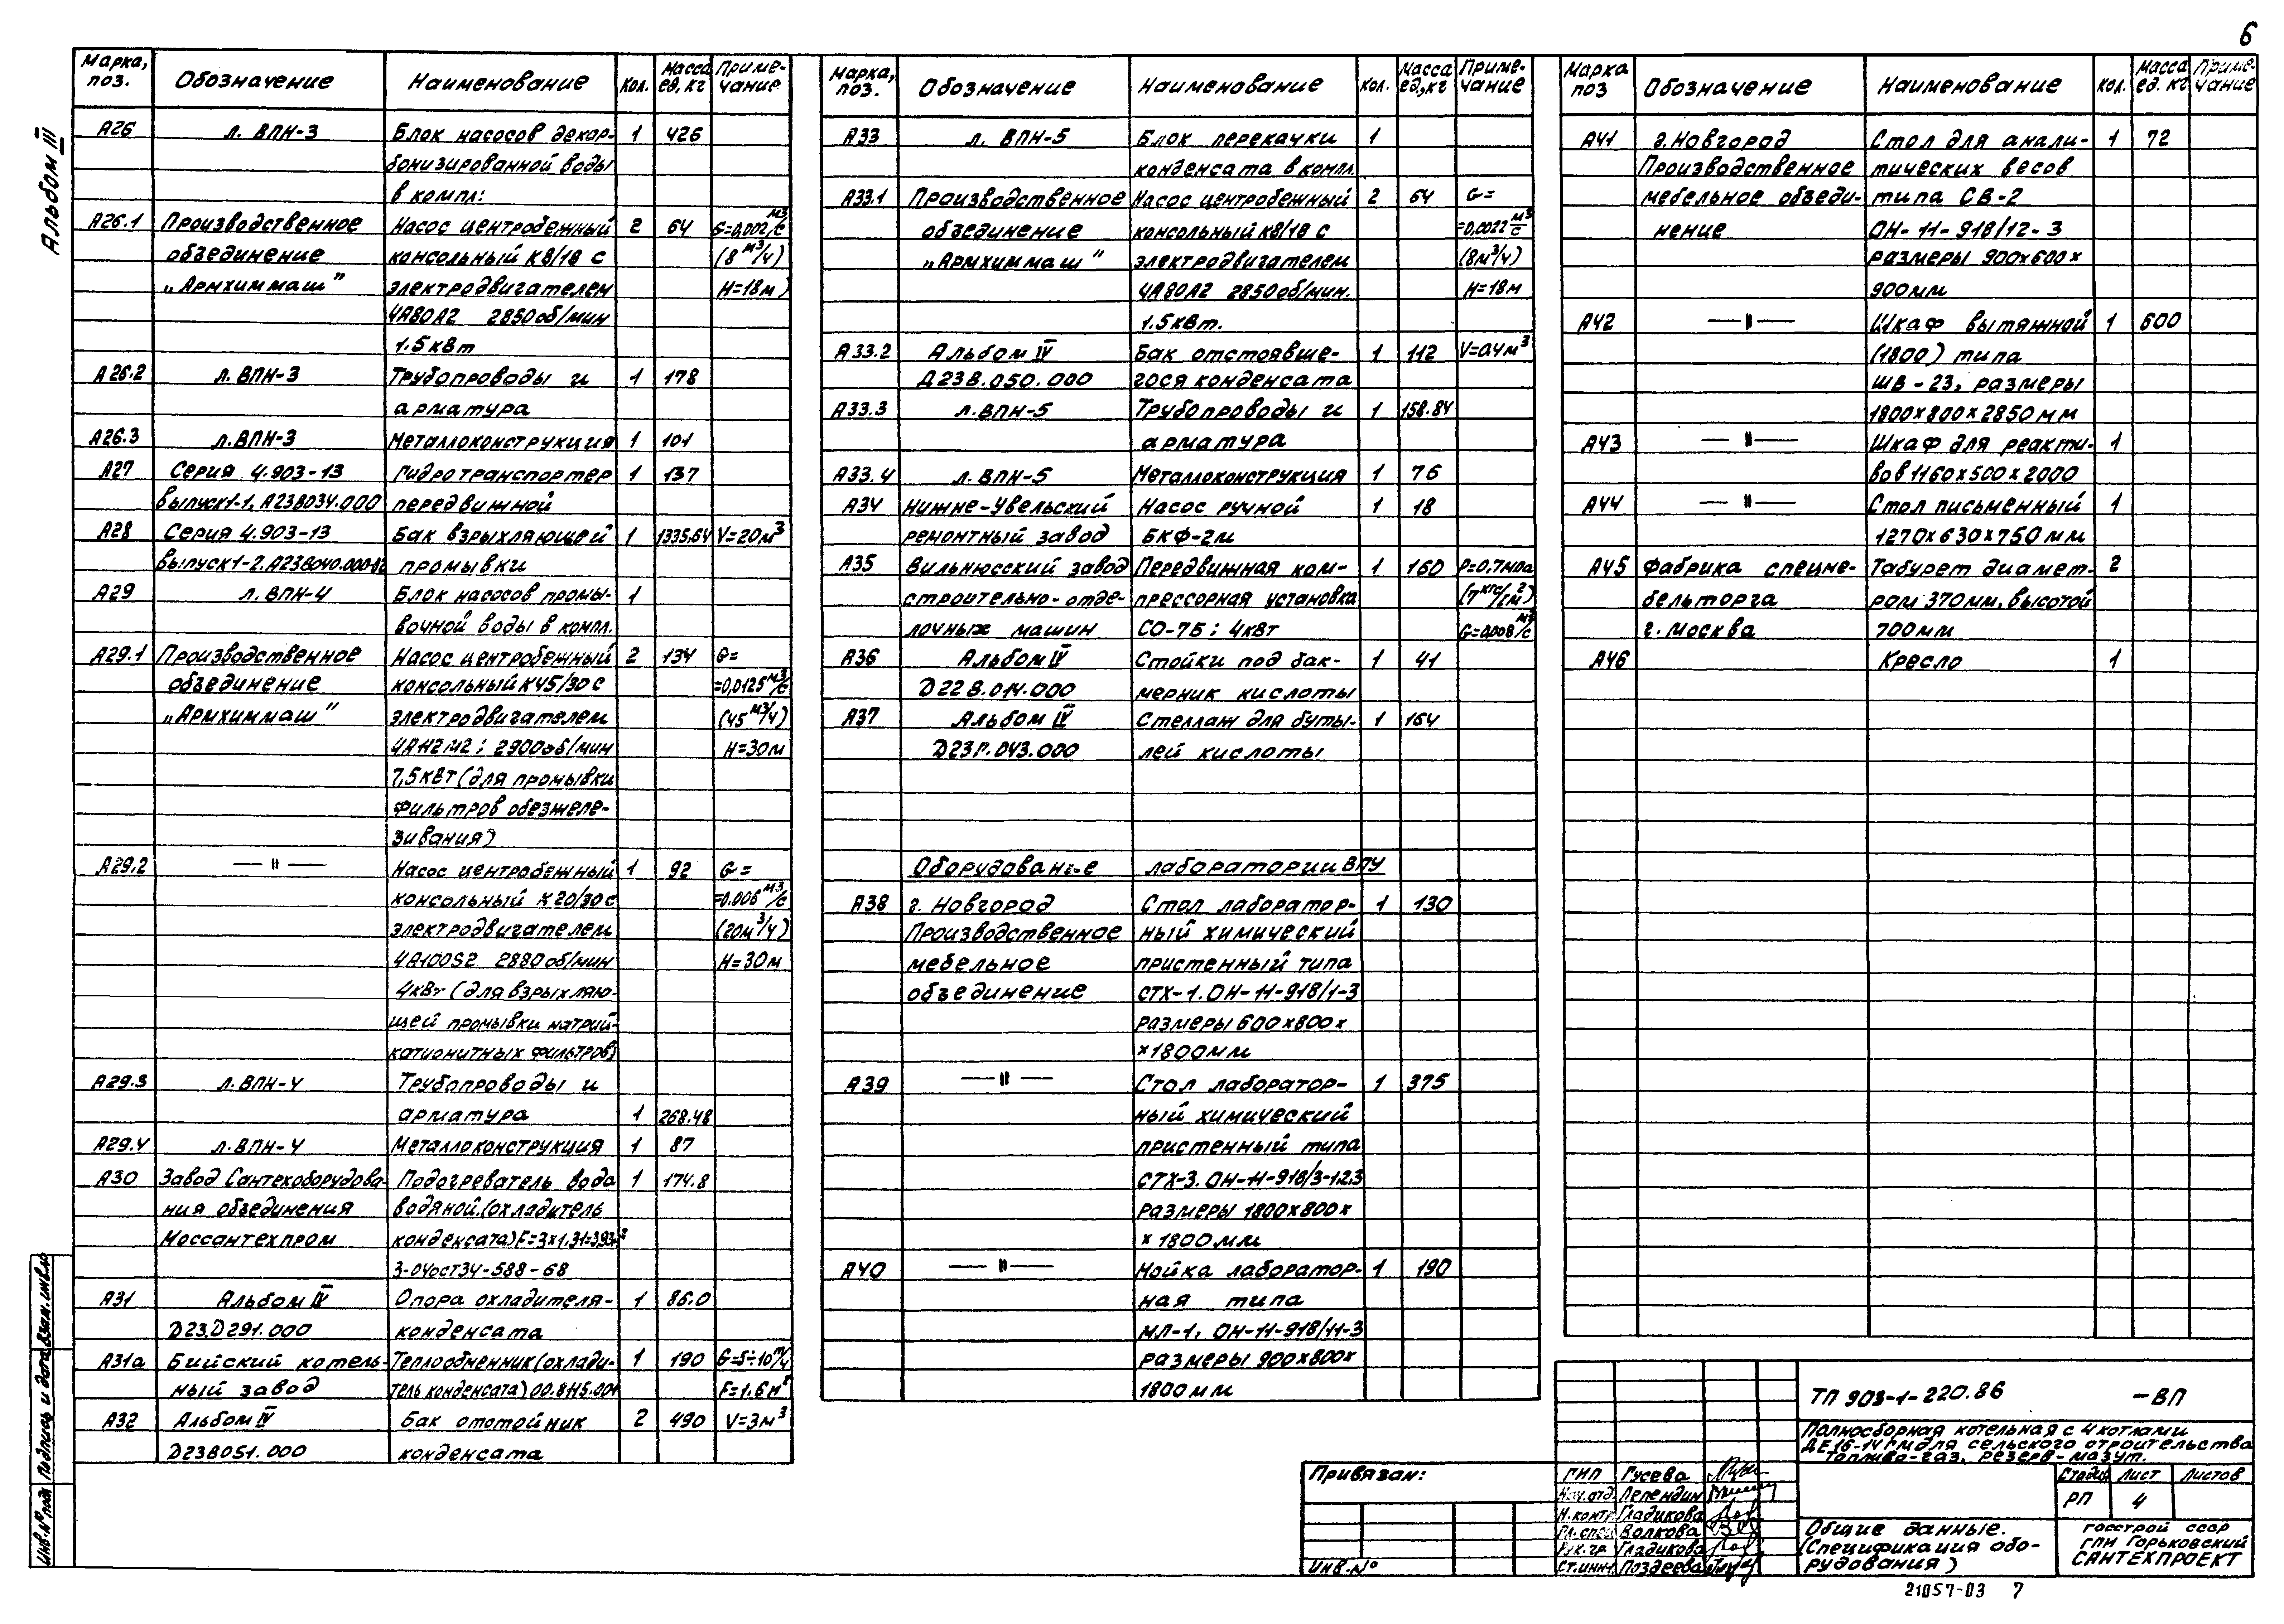 6
Альбом III
Марка, поз. Обозначение Наименование Кол. Масса ед, кг Приме-чание
А26 л. ВПН-3 Блок насосов декар- 1 426
бонизированной воды
в компл:
А26.1 Производственное Насос центробежный 2 64 G=0,002 м3/с
объединение консольный К8/18 с (8 м3/ч)
„Армхиммаш" электродвигателем Н=18м)
4А80А2 2850об/мин
1.5кВт
А26.2 л. ВПН-3 Трубопроводы и 1 178
арматура
А26.3 л.ВПН-3 Металлоконструкция 1 101
А27 Серия 4.903-13 Гидротранспортер 1 137
выпуск1-1, А23В034.000 передвижной
А28 Серия 4.903-13 Бак взрыхляющей 1 1335,64 V=20м3
выпуск1-2. А23В040.000-02 промывки
А29 л. ВПН-4 Блок насосов промы- 1
вочной воды в компл.
А29.1 Производственное Насос центробежный 2 134 G=
объединение консольный К45/30 с =0,0125 м3/с
„Армхиммаш" электродвигателем (45 м3/ч)
4АН2М2; 2900об/мин Н=30м
7,5кВт (для промывки
фильтров обезжеле-
зивания)
А29.2 — 〃 — Насос центробежный 1 92 G=
консольный К20/30 с =0.006 м3/с
электродвигателем (20м3/ч)
4А100S2 2880об/мин Н=30м
4кВт (для взрыхляю-
щей промывки натрий-
катионитных фильтров)
А29.3 л.ВПН-4 Трубопроводы и
арматура 1 268.48
А29.4 л.ВПН-4 Металлоконструкция 1 87
А30 Завод Сантехоборудова- Подогреватель вода 1 174.8
ния объединения водяной.(охладитель
Моссантехпром конденсата) F=3х1,31=3,93м2
3-04ост34-588-68
А31 Альбом IV Опора охладителя- 1 86.0
Д23.Д291.000 конденсата
А31а Бийский котель- Теплообменник(охлади- 1 190 G=5÷10 т/ч
ный завод тель конденсата) 00.8115.001 F=1.6м2
А32 Альбом IV Бак отстойник 2 490 V=3м3
Д23В051.000 конденсата
Марка, поз. Обозначение Наименование Кол. Масса ед,кг Приме-чание
А33 л. ВПН-5 Блок перекачки 1
конденсата в компл.
А33.1 Производственное Насос центробежный 2 64 G=
объединение консольный К8/18 с =0,0022 м3/с
„Армхиммаш" электродвигателем (8м3/ч)
4А80А2 2850об/мин. Н=18м
1.5кВт.
А33.2 Альбом IV Бак отстоявше- 1 112 V=0,4м3
Д23В.050.000 гося конденсата
А33.3 л.ВПН-5 Трубопроводы и 1 158.84
арматура
А33.4 л.ВПН-5 Металлоконструкция 1 76
А34 Нижне-Увельский Насос ручной 1 18
ремонтный завод БКФ-2м
А35 Вильнюсский завод Передвижная ком- 1 160 Р=0,7мпа
строительно-отде- прессорная установка (7 кгс/см2)
лочных машин СО-7Б; 4кВт G=0,008 м3/с
А36 Альбом IV Стойки под бак- 1 41
Д22В.014.000 мерник кислоты
А37 Альбом IV Стеллаж для буты- 1 164
Д23Г.043.000 лей кислоты
Оборудование лаборатории ВПУ
А38 г. Новгород Стол лаборатор- 1 130
Производственное ный химический
мебельное пристенный типа
объединение СТХ-1. ОН-11-918/1-3
размеры 600х800х
х1800мм
А39 — 〃 — Стол лаборатор- 1 375
ный химический
пристенный типа
СТХ-3. ОН-11-918/3-1,2,3
размеры 1800х800х
х 1800мм
А40 — 〃 — Мойка лаборатор- 1 190
ная типа
МЛ-1, ОН-11-918/11-3
размеры 900х800х
1800мм
Марка поз Обозначение Наименование Кол. Масса ед. кг Приме-чание
А41 г.Новгород Стол для анали- 1 72
Производственное тических весов
мебельное объеди- типа СВ-2
нение ОН-11-918/12-3
размеры 900х600х
900мм
А42 — 〃 — Шкаф вытяжной 1 600
(1800) типа
ШВ-23, размеры
1800х800х2850мм
А43 — 〃 — Шкаф для реакти- 1
вов 1160х500х2000
А44 — 〃 — Стол письменный 1
1270х630х750мм
А45 Фабрика спецме- Табурет диамет- 2
бельторга ром 370мм, высотой
г. Москва 700мм
А46 Кресло 1
ТП 903-1-220.86 -ВП
Полносборная котельная с 4 котлами
ДЕ16-14ГМ для сельского строительства
Топливо-газ, резерв-мазут.
Стадия Лист Листов
РП 4
Общие данные.
(Спецификация обо-
рудования)
госстрой ссср
гпи Горьковский
САНТЕХПРОЕКТ
Привязан:
Инв.№
ГИП Гусева
Нач.отд. Лепендин
Н.контр. Гладикова
Гл.спец Волкова
Рук.гр. Гладикова
Ст.инж. Поздеева
Инв.№подл Подпись и дата Взам.инв.№
21057-03 7